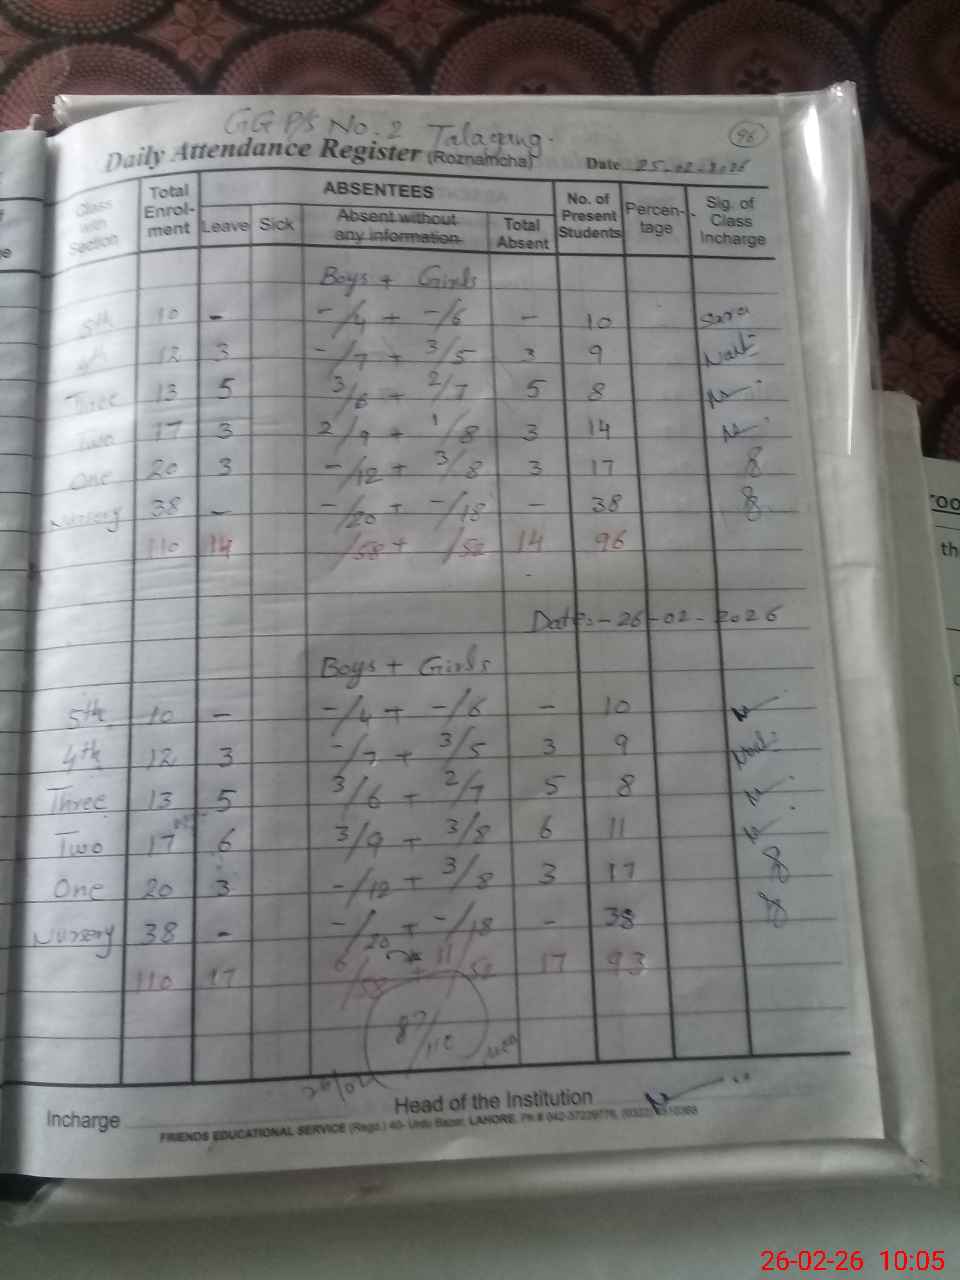 GGP/S No. 2 Talagang.
96
Daily Attendance Register (Roznamcha) Date 25-02-2026
Class with Section
Total Enrol-ment
ABSENTEES
Leave Sick Absent without any information Total Absent
No. of Present Students
Percen-tage
Sig. of Class Incharge
Boys + Girls
5th 10 - -/4 + -/6 - 10 Sara
4th 12 3 -/7 + 3/5 3 9
Three 13 5 3/6 + 2/7 5 8
Two 17 3 2/9 + 1/8 3 14
One 20 3 -/12 + 3/8 3 17
Nursery 38 - -/20 + -/18 - 38
110 14 /58 + /52 14 96
Date:- 26-02-2026
Boys + Girls
5th 10 - -/4 + -/6 - 10
4th 12 3 -/7 + 3/5 3 9
Three 13 5 3/6 + 2/7 5 8
Two 17 6 3/9 + 3/8 6 11
One 20 3 -/12 + 3/8 3 17
Nursery 38 - -/20 + -/18 - 38
110 17 6/58 + 11/52 17 93
Incharge Head of the Institution
FRIENDS EDUCATIONAL SERVICE (Regd.) 40- Urdu Bazar, LAHORE. Ph #
roo
th
26-02-26 10:05